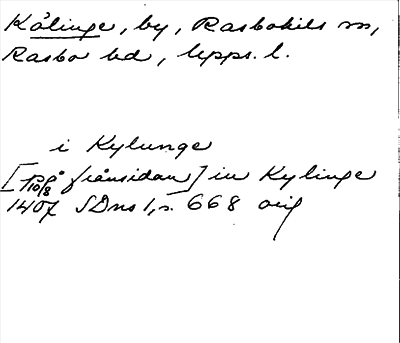 Kålinge, by, Rasbokils sn,
Rasbo hd, Upps. l.
i Kylunge
[på frånsidan] in Kylinge
10/8
1407 SDns 1, s. 668 orig